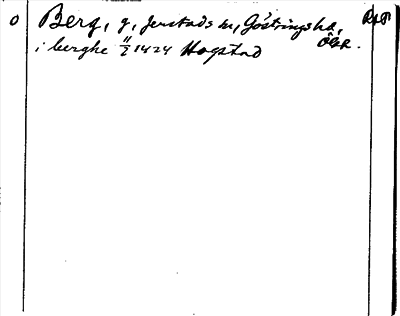 O Berg, g, Jerstads sn, Göstrings hd, Ög. RAP
i berghe 11/2 1424 Hogstad